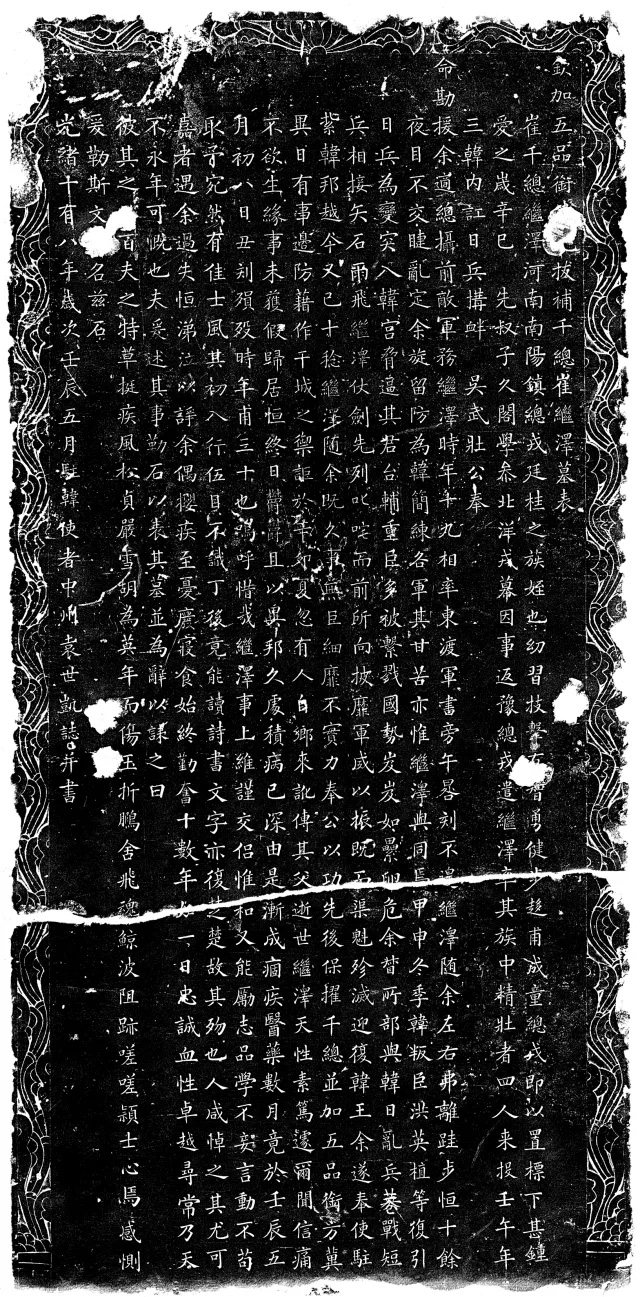 欽加五品銜拔補千總崔繼澤墓表
崔千總繼澤河南南陽鎮總戎廷桂之族姪也幼習技藝勇健步趨甫成童總戎即以置標下甚鍾
愛之歲辛巳先叔子久閣學參北洋戎幕因事返豫總戎遣繼澤率其族中精壯者四人來投壬午年
三韓內訌日兵搆衅吳武壯公奉
命勘援余適總攝前敵軍務繼澤時年十九相率東渡軍書旁午晷刻不遑繼澤隨余左右弗離跬步恒十餘
夜目不交睫亂定余旋留防為韓簡練各軍其甘苦亦惟繼澤與同焉甲申冬季韓叛臣洪英植等復引
日兵為變突入韓宮脅逼其君台輔重臣多被繫戮國勢岌岌如纍卵危余督所部與韓日亂兵巷戰短
兵相接矢石雨飛繼澤仗劍先列叱咤而前所向披靡軍威以振既而渠魁殄滅迎復韓王余遂奉使駐
紮韓邦越今又已十稔繼澤隨余既久事無巨細靡不實力奉公以功先後保擢千總並加五品銜方冀
異日有事邊防藉作干城之禦詎於辛卯夏忽有人自鄉來訛傳其父逝世繼澤天性素篤遽爾聞信痛
不欲生緣事未獲假歸居恒終日鬱鬱且以異邦久處積病已深由是漸成痼疾醫藥數月竟於壬辰五
月初八日丑刻殞歿時年甫三十也嗚呼惜哉繼澤事上維謹交侶惟和又能勵志品學不妄言動不苟
取予宛然有佳士風其初入行伍目不識丁後竟能讀詩書文字亦復楚楚故其歿也人咸悼之其尤可
嘉者遇余過失恒涕泣以諍余偶攖疾至憂廢寢食始終勤奮十數年如一日忠誠血性卓越尋常乃天
不永年可慨也夫爰述其事勒石以表其墓並為辭以誄之曰
彼其之百夫之特草挺疾風松貞嚴雪胡為英年而傷玉折鵬舍飛魂鯨波阻跡嗟嗟穎士心焉感惻
爰勒斯文名茲石
光緒十有八年歲次壬辰五月駐韓使者中州袁世凱誌并書